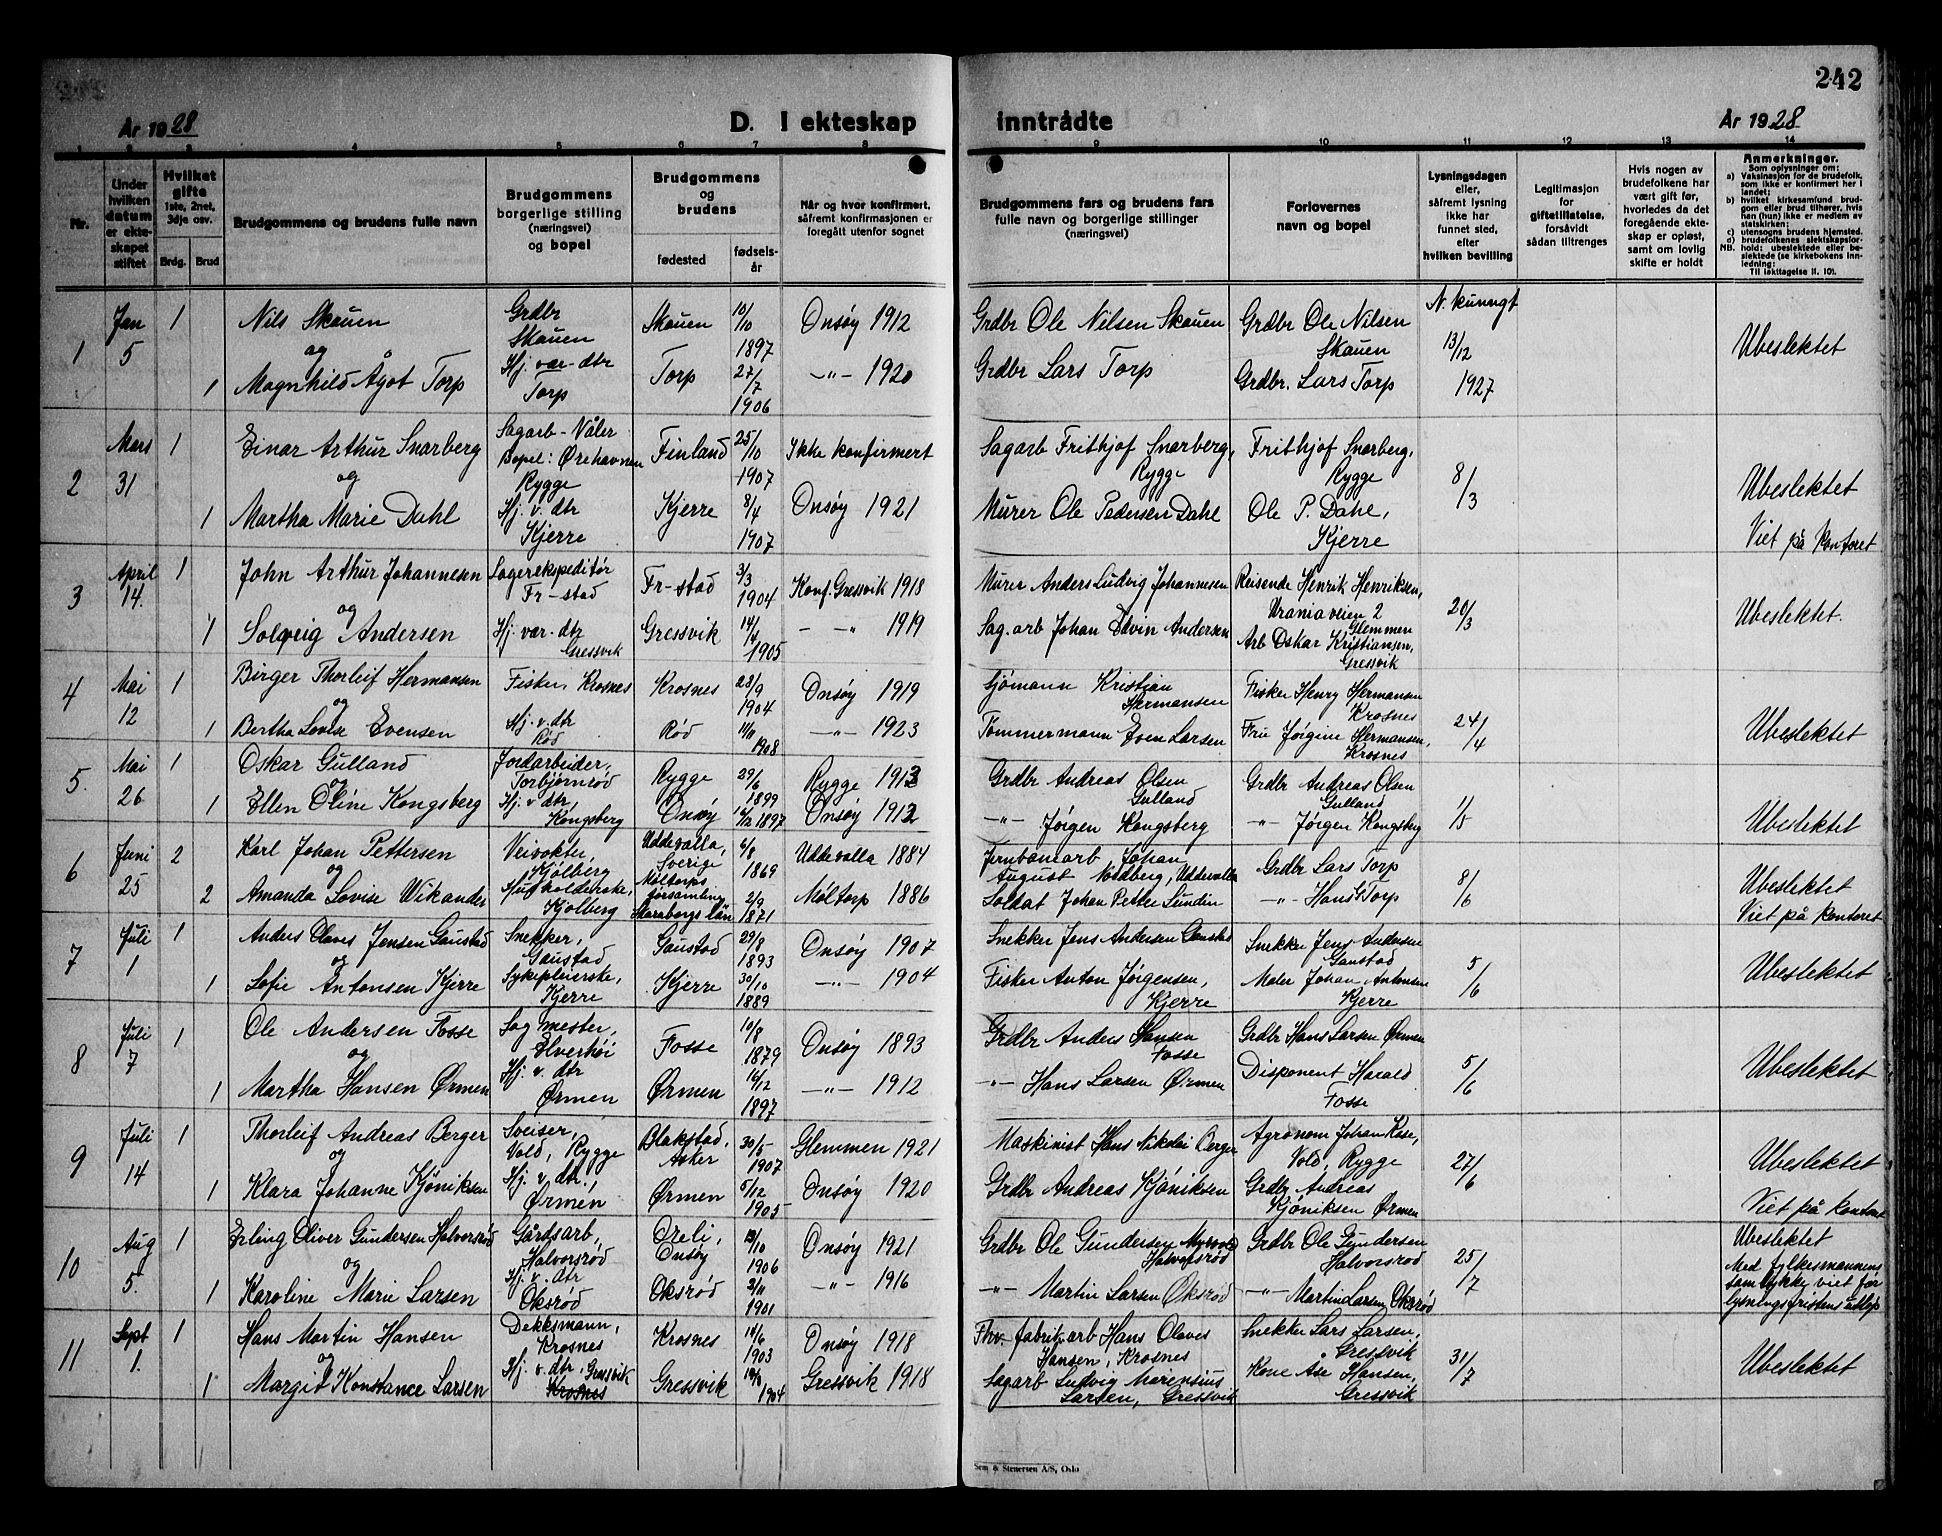 242
År 1928
D. I ekteskap inntrådte
År 1928
1 2 3 4 5 6 7 8 9 10 11 12 13 14
Nr.
Under hvilken datum er ekteskapet stiftet
Hvilket gifte 1ste, 2net, 3dje osv.
Brdg. Brud
Brudgommens og brudens fulle navn
Brudgommens borgerlige stilling (næringsvei) og bopel
Brudgommens og brudens
fødested
fødselsår
Når og hvor konfirmert, såfremt konfirmasjonen er foregått utenfor sognet
Brudgommens fars og brudens fars fulle navn og borgerlige stillinger (næringsvei)
Forlovernes navn og bopel
Lysningsdagen eller, såfremt lysning ikke har funnet sted, efter hvilken bevilling
Legitimasjon for giftetillatelse, forsåvidt sådan tiltrenges
Hvis nogen av brudefolkene har vært gift før, hvorledes da det foregående ekteskap er opløst, samt om lovlig skifte er holdt
Anmerkninger.
Som oplysninger om:
a) Vaksinasjon for de brudefolk, som ikke er konfirmert her i landet;
b) hvilket kirkesamfund brudgom eller brud tilhører, hvis han (hun) ikke er medlem av statskirken:
c) utensogns brudens hjemsted.
d) brudefolkenes slektskapsforhold: ubeslektede eller beslektede (se kirkebokens innledning:
NB.
Til iakttagelse II. 10).
1 Jan 5 1 Nils Skauen Grdbr Skauen Skauen 10/10 1897 Onsøy 1912 Grdbr Ole Nilsen Skauen Grdbr Ole Nilsen Skauen N. kunngt 13/12 1927 Ubeslektet
og
1 Magnhild Ågot Torp Hj. var. dtr Torp Torp 27/7 1906 -"- 1920 Grdbr Lars Torp Grdbr. Lars Torp
2 Mars 31 1 Einar Arthur Snarberg Sagarb - Våler Bopel: Ørehavnen Rygge Finland 25/10 1907 Ikke konfirmert Sagarb Frithjof Snarberg, Rygge Frithjof Snarberg, Rygge 8/3 Ubeslektet
og
1 Martha Marie Dahl Hj. v. dtr Kjerre Kjerre 8/4 1907 Onsøy 1921 Murer Ole Pedersen Dahl Ole P. Dahl, Kjerre Viet på kontoret
3 April 14. 1 John Arthur Johannesen Lagerekspeditør Fr-stad Fr-stad 3/3 1904 Konf. Gressvik 1918 Murer Anders Ludvig Johannesen Reisende Henrik Henriksen, Uraniaveien 2 Glemmen 20/3 Ubeslektet.
og
1 Solveig Andersen Hj. var. dtr Gressvik Gressvik 14/4 1905 - " - 1919 Sag.arb Johan Edvin Andersen Arb Oskar Kristiansen, Gressvik
4 Mai 12 1 Birger Thorleif Hermansen Fisker, Krosnes Krosnes 28/9 1904 Onsøy 1919 Sjømann Kristian Hermansen Fisker Henry Hermansen Krosnes 24/4 Ubeslektet
og
1 Bertha Lovise Evensen Hj. v. dtr Rød Rød 11/11 1908 -"- 1923 Tømmermann Even Larsen Fru Jørgine Hermansen, Krosnes
5. Mai 26 1 Oskar Gulland Jordarbeider, Torbjørnrød Rygge 29/6 1899 Rygge 1913 Grdbr Andreas Olsen Gulland Grdbr Andreas Olsen Gulland 1/5 Ubeslektet
og
1 Ellen Oline Kongsberg Hj. v dtr, Kongsberg Onsøy 1897 Onsøy 1912 -"- Jørgen Kongsberg -"- Jørgen Kongsberg
6 Juni 25 2 Karl Johan Pettersen Veivokter, Kjølberg Uddevalla, Sverige 6/8 1869 Uddevalla 1884 Jernbanearb Johan August Nordberg, Uddevalla Grdbr Lars Torp 8/6 Ubeslektet
og
2 Amanda Lovise Wikander Husholderske, Kjølberg Möltorps församling Skaraborgs län 2/9 1871 Möltorp 1886 Soldat Johan Petter Lundin -"- Hans Torp Viet på kontoret
7 Juli 1 1 Anders Olaves Jensen Gaustad Snekker, Gaustad Gaustad 29/8 1893 Onsøy 1907 Snekker Jens Andersen Gaustad Snekker Jens Andersen Gaustad 5/6 Ubeslektet
og
1 Sofie Antonsen Kjerre Sykepleierske, Kjerre Kjerre 30/10 1889 -"- 1904 Fisker Anton Jørgensen, Kjerre Maler Johan Antonsen Kjerre
8 Juli 7 1 Ole Andersen Fosse Sagmester, Elverhøi Fosse 10/8 1879 Onsøy 1893 Grdbr Anders Hansen Fosse Grdbr Hans Larsen Ørmen 5/6 Ubeslektet
og
1 Martha Hansen Ørmen Hj. v. dtr Ørmen Ørmen 16/12 1897 -"- 1912 -"- Hans Larsen Ørmen Disponent Harald Fosse
9 Juli 14 1 Thorleif Andreas Berger Sveiser, Vold, Rygge Blakstad, Asker 30/5 1907 Glemmen 1921 Maskinist Hans Nikolai Berger Agronom Johan Rose, Vold, Rygge 27/6 Ubeslektet
og
1 Klara Johanne Kjøniksen Hj. v. dtr. Ørmen Ørmen 5/12 1905 Onsøy 1920 Grdbr Andreas Kjøniksen Grdbr Andreas Kjøniksen Ørmen Viet på kontoret
10 Aug 5. 1 Erling Oliver Gundersen Halvorsrød Gårdsarb, Halvorsrød Øreli, Onsøy 1906 Onsøy 1921 Grdbr Ole Gundersen Halvorsrød Grdbr Ole Gundersen Halvorsrød 25/7 Ubeslektet
og
1 Karoline Marie Larsen Hj. v. dtr Oksrød Oksrød 2/11 1901 -"- 1916 -"- Martin Larsen Oksrød -"- Martin Larsen Oksrød Med fylkesmannens samtykke viet før lysningsfristens utløp
11 Sept 1. 1 Hans Martin Hansen Dekksmann, Krosnes Krosnes 10/6 1903 Onsøy 1918 Fhv. fabrikarb Hans Olaves Hansen, Krosnes Snekker Lars Larsen, Gressvik 31/7 Ubeslektet
og
1 Margit Konstance Larsen Hj. v. dtr. Gressvik Krosnes Gressvik 1904 Gressvik 1918 Sagarb Ludvig Marensius Larsen, Gressvik Kone Åse Hansen, Gressvik
Sem & Stenersen A/S, Oslo